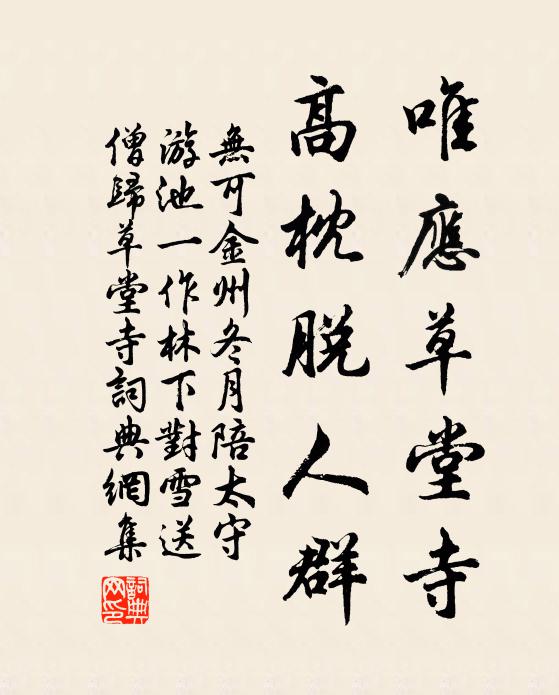 唯應草堂寺
高枕脱人群
無可金州冬月陪太守
游池一作林下對雪送
僧歸草堂寺詞典網集
詞典網印